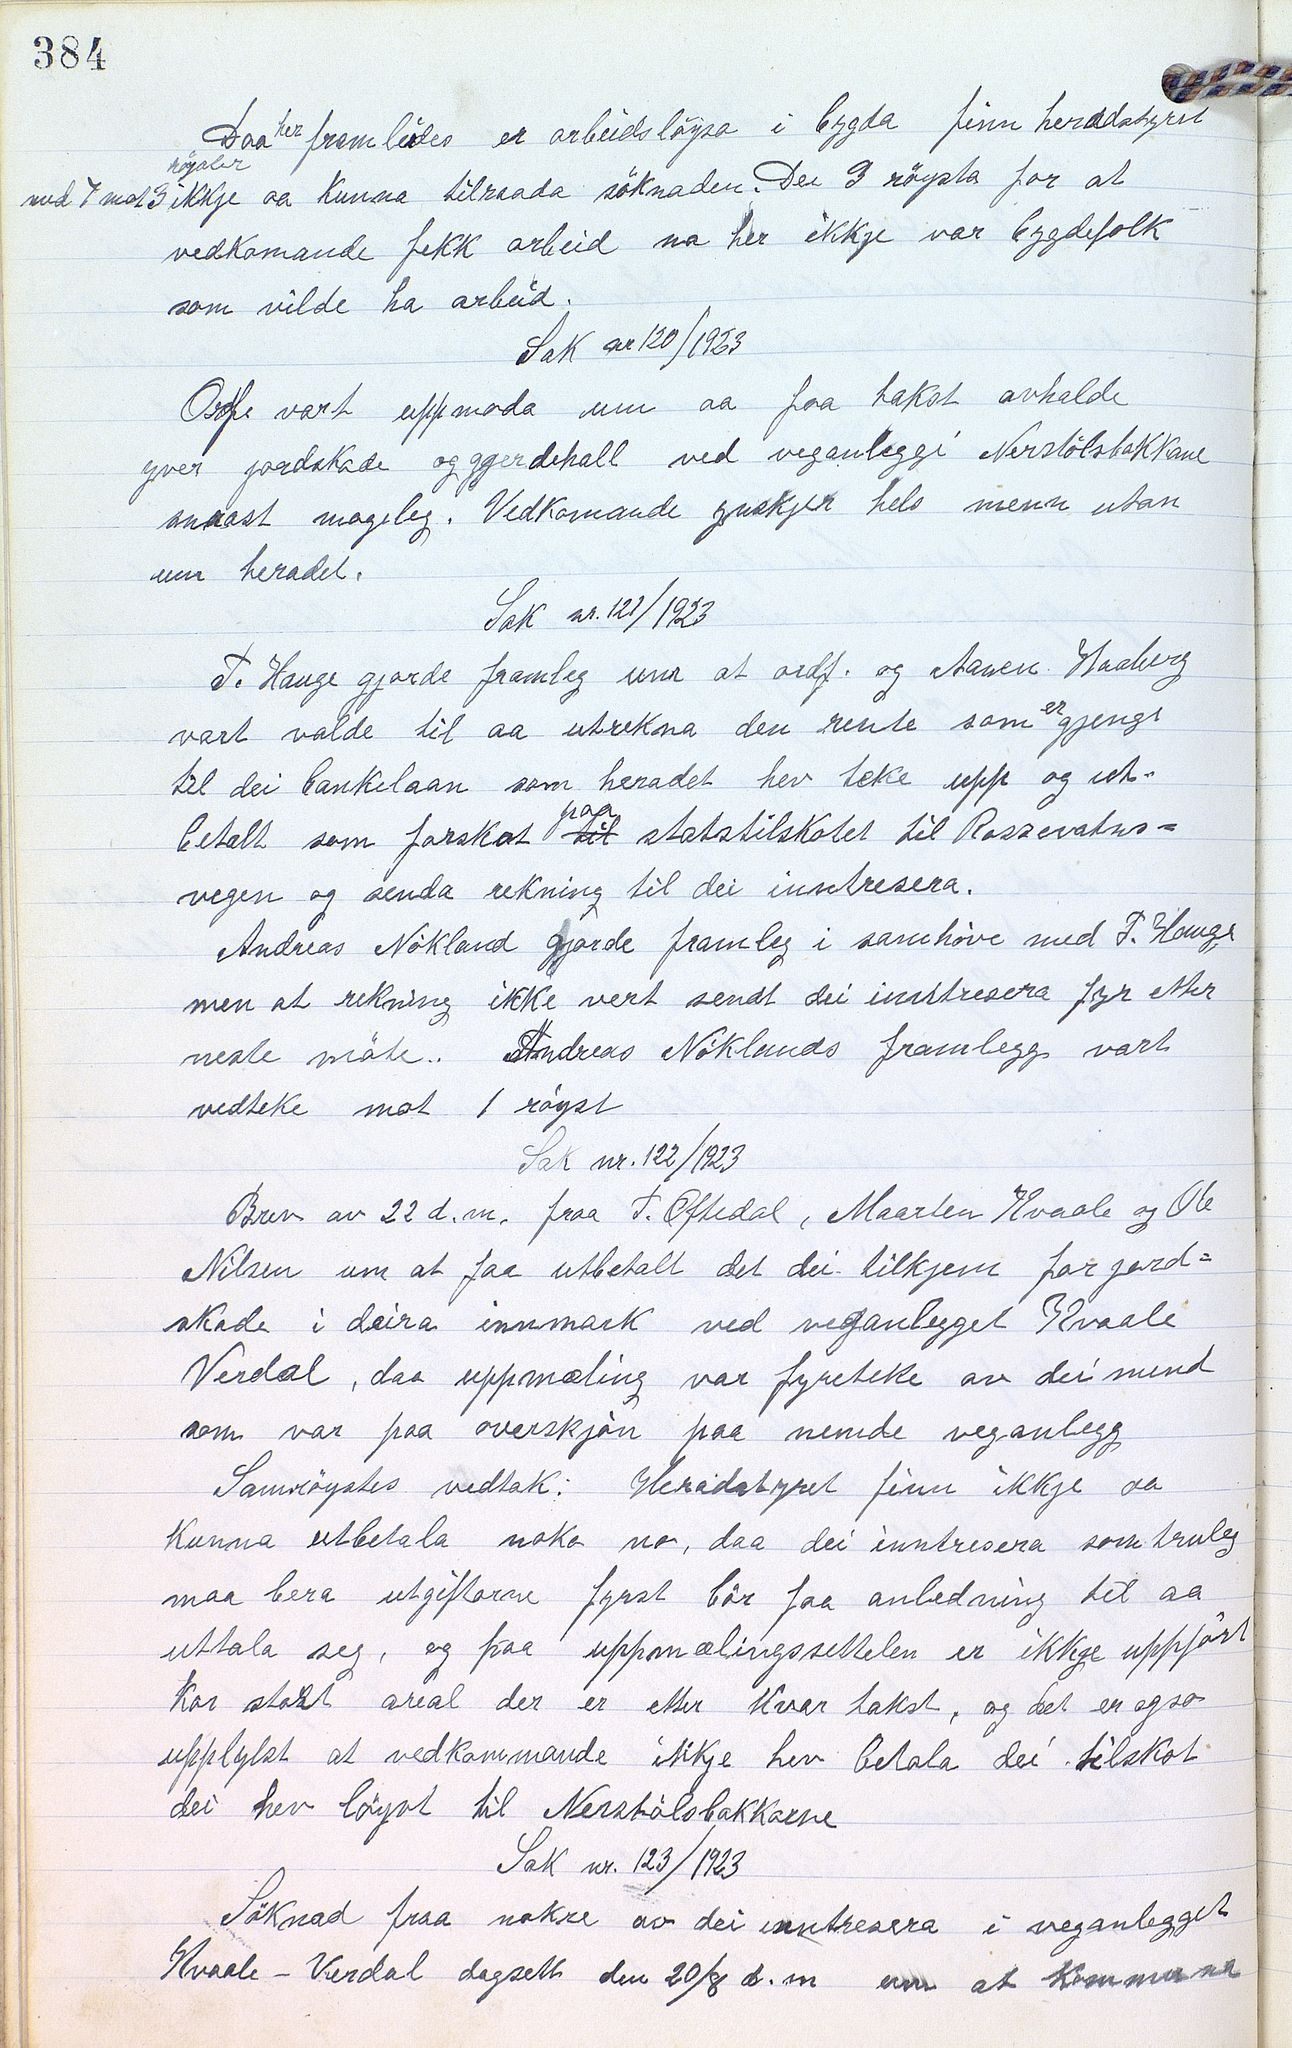 384
Daa her framleides er arbeidsløysa i bygda finn heradstyret
med 7 mot 3 røyster ikkje aa kunna tilraada söknaden. Dei 3 röysta for at
vedkomande fekk arbeid naa her ikkje var bygdefolk
som vilde ha arbeid.
Sak nr 120/1923
Ordf. vart uppmoda um aa faa takst avhalde
yver jordskade og gjerdehall ved veganlegg i Nerstölsbakkane
snarast mogeleg. Vedkomande ynskjer hels menn utan
um heradet.
Sak nr. 121/1923
T. Hauge gjorde framleg um at ordf. og Aanen Haaberg
vart valde til aa utrekna den rente som er gjengi
til dei bankelaan som heradet hev teke upp og ut-
betalt som forskot til paa statstilskotet til Rossevatns=
vegen og senda rekning til dei inntresera.
Andreas Nökland gjorde framleg i samhöve med T. Hauge
men at rekning ikke vert sendt dei inntresera fyr etter
neste möte.. Andreas Nöklands framlegg vart
vedteke mot 1 röyst
Sak nr. 122/1923
Brev av 22 d.m. fraa T. Oftedal, Maarten Kvaale og Ole
Nilsen um at faa utbetalt det dei tilkjem for jord=
skade i deira innmark ved veganlegget Kvaale
Verdal, daa uppmæling var fyreteke av dei mend
som var paa overskjön paa nemde veganlegg
Samröystes vedtak: Heradstyret finn ikkje aa
kunna utbetala noko no, daa dei inntresera som truleg
maa bera utgiftarne fyrst bör faa anledning til aa
uttala seg, og paa uppmælingssettelen er ikkje uppfört
kor stort areal der er etter kvar takst, og det er ogso
upplyst at vedkommande ikkje hev betala dei tilskot
dei hev löyvt til Nerstölsbakkarne
Sak nr. 123/1923
Söknad fraa nokre av dei inntresera i veganlegget
Kvaale - Verdal dagsett den 20/8 d.m um at kommuna